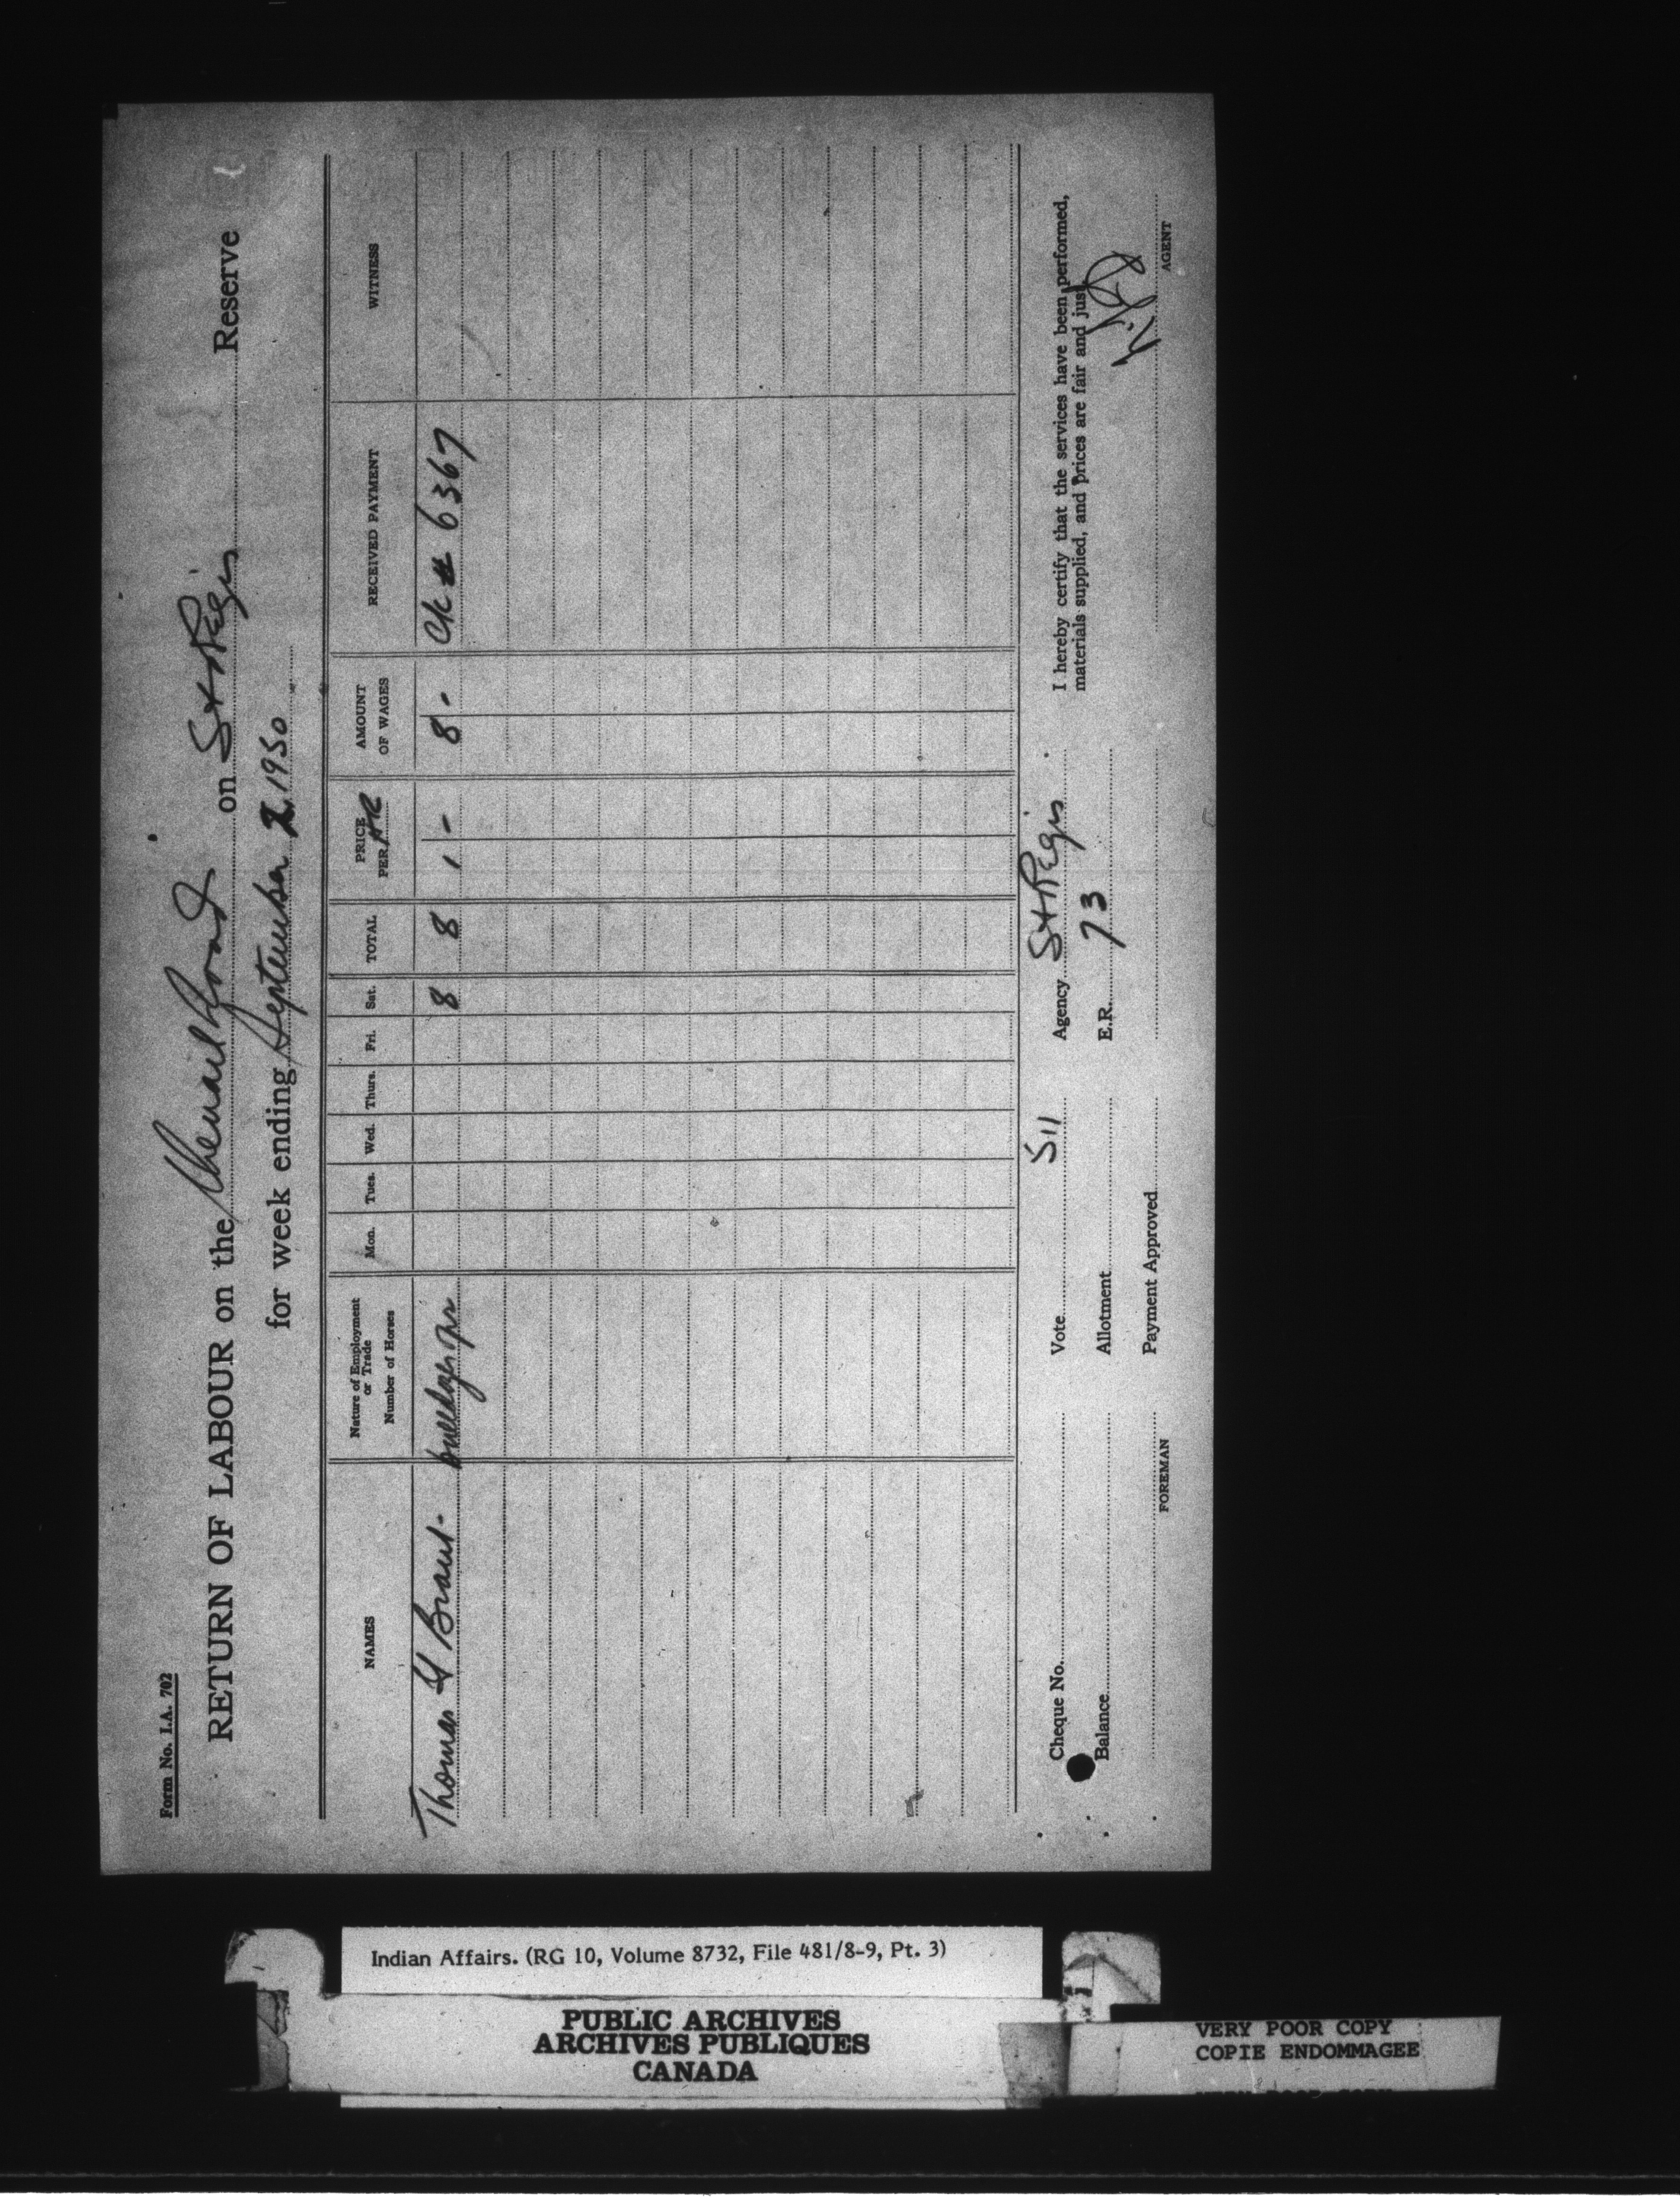 Form No. I.A. 702
RETURN OF LABOUR on the Chenail Road on St Regis Reserve
for week ending September 2 1950
NAMES Nature of Employment or Trade Number of Horses Mon. Tues. Wed. Thurs. Fri. Sat. TOTAL PRICE PER HR AMOUNT OF WAGES RECEIVED PAYMENT WITNESS
Thomas H Brant bulldozer opr 8 8 1 - 8 - Ck # 6367
Cheque No. Vote 511 Agency St Regis
I hereby certify that the services have been performed,
materials supplied, and prices are fair and just.
Balance Allotment E.R. 73
Payment Approved
FOREMAN AGENT
Indian Affairs. (RG 10, Volume 8732, File 481/8-9, Pt. 3)
PUBLIC ARCHIVES
ARCHIVES PUBLIQUES
CANADA
VERY POOR COPY
COPIE ENDOMMAGEE